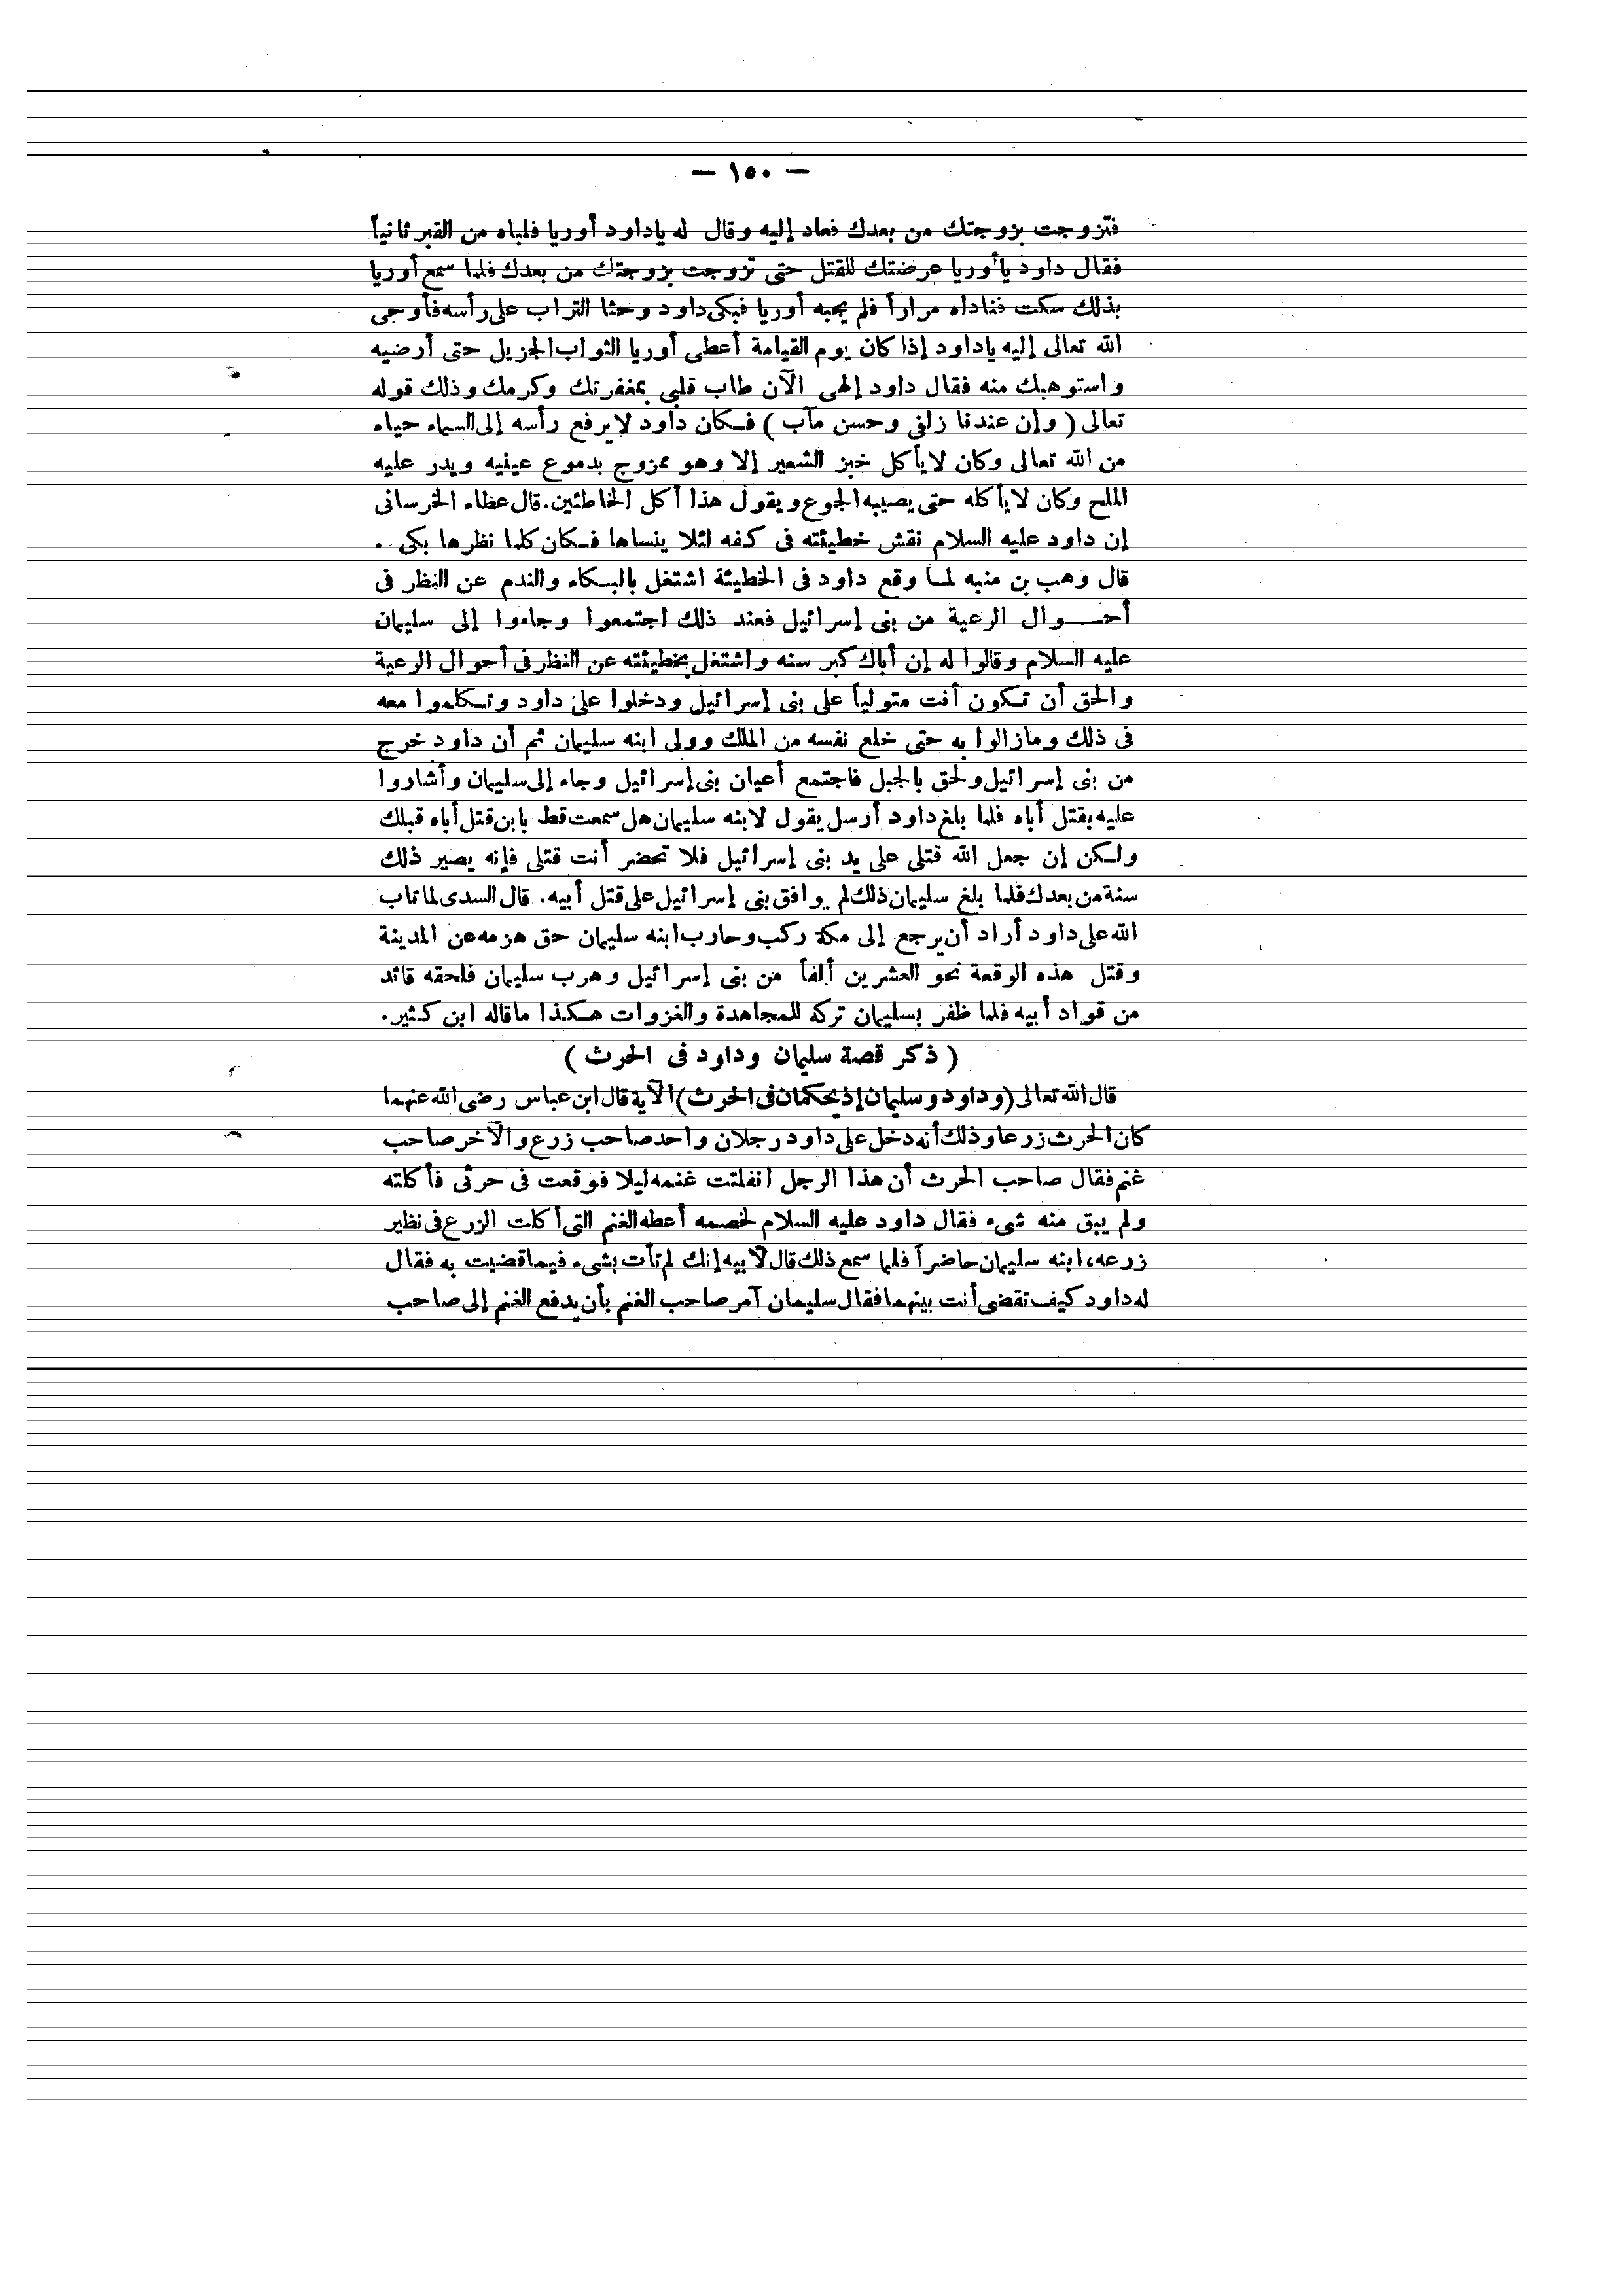 — ١٥٠ —
فتزوجت بزوجتك من بعدك فعاد إليه وقال له ياداود أوريا فلباه من القبر ثانياً
فقال داود يا أوريا عرضتك للقتل حتى تزوجت بزوجتك من بعدك فلما سمع أوريا
بذلك سكت فناداه مراراً فلم يجبه أوريا فبكى داود وحثا التراب على رأسه فأوحى
الله تعالى إليه ياداود إذا كان يوم القيامة أعطى أوريا الثواب الجزيل حتى أرضيه
واستوهبك منه فقال داود إلهى الآن طاب قلبى بمغفرتك وكرمك وذلك قوله
تعالى ( وإن عندنا زلفى وحسن مآب ) فكان داود لا يرفع رأسه إلى السماء حياء
من الله تعالى وكان لا يأكل خبز الشعير إلا وهو ممزوج بدموع عينيه ويدر عليه
الملح وكان لا يأكله حتى يصيبه الجوع ويقول هذا أكل الخاطئين. قال عطاء الخرسانى
إن داود عليه السلام نقش خطيئته فى كفه لئلا ينساها فكان كلما نظرها بكى .
قال وهب بن منبه لما وقع داود فى الخطيئة اشتغل بالبكاء والندم عن النظر فى
أحوال الرعية من بنى إسرائيل فعند ذلك اجتمعوا وجاءوا إلى سليمان
عليه السلام وقالوا له إن أباك كبر سنه واشتغل بخطيئته عن النظر فى أحوال الرعية
والحق أن تكون أنت متولياً على بنى إسرائيل ودخلوا على داود وتكلموا معه
فى ذلك ومازالوا به حتى خلع نفسه من الملك وولى ابنه سليمان ثم أن داود خرج
من بنى إسرائيل ولحق بالجبل فاجتمع أعيان بنى إسرائيل وجاء إلى سليمان وأشاروا
عليه بقتل أباه فلما بلغ داود أرسل يقول لابنه سليمان هل سمعت قط بابن قتل أباه قبلك
ولكن إن جعل الله قتلى على يد بنى إسرائيل فلا تحضر أنت قتلى فإنه يصير ذلك
سنة من بعدك فلما بلغ سليمان ذلك لم يوافق بنى إسرائيل على قتل أبيه. قال السدى لما تاب
الله على داود أراد أن يرجع إلى مكة ركب وحارب ابنه سليمان حق هزمه عن المدينة
وقتل هذه الوقعة نحو العشرين ألفاً من بنى إسرائيل وهرب سليمان فلحقه قائد
من قواد أبيه فلما ظفر بسليمان تركه للمجاهدة والغزوات هكذا ماقاله ابن كثير.
( ذكر قصة سليمان وداود فى الحرث )
قال الله تعالى (وداود وسليمان إذ يحكمان فى الحرث) الآية قال ابن عباس رضى الله عنهما
كان الحرث زرعا وذلك أنه دخل على داود رجلان واحد صاحب زرع والآخر صاحب
غنم فقال صاحب الحرث أن هذا الرجل انفلتت غنمه ليلا فوقعت فى حرثى فأكلته
ولم يبق منه شىء فقال داود عليه السلام لخصمه أعطه الغنم التى أكلت الزرع فى نظير
زرعه، ابنه سليمان حاضراً فلما سمع ذلك قال لأبيه إنك لم تأت بشىء فيما قضيت به فقال
له داود كيف تقضى أنت بينهما فقال سليمان آمر صاحب الغنم بأن يدفع الغنم إلى صاحب